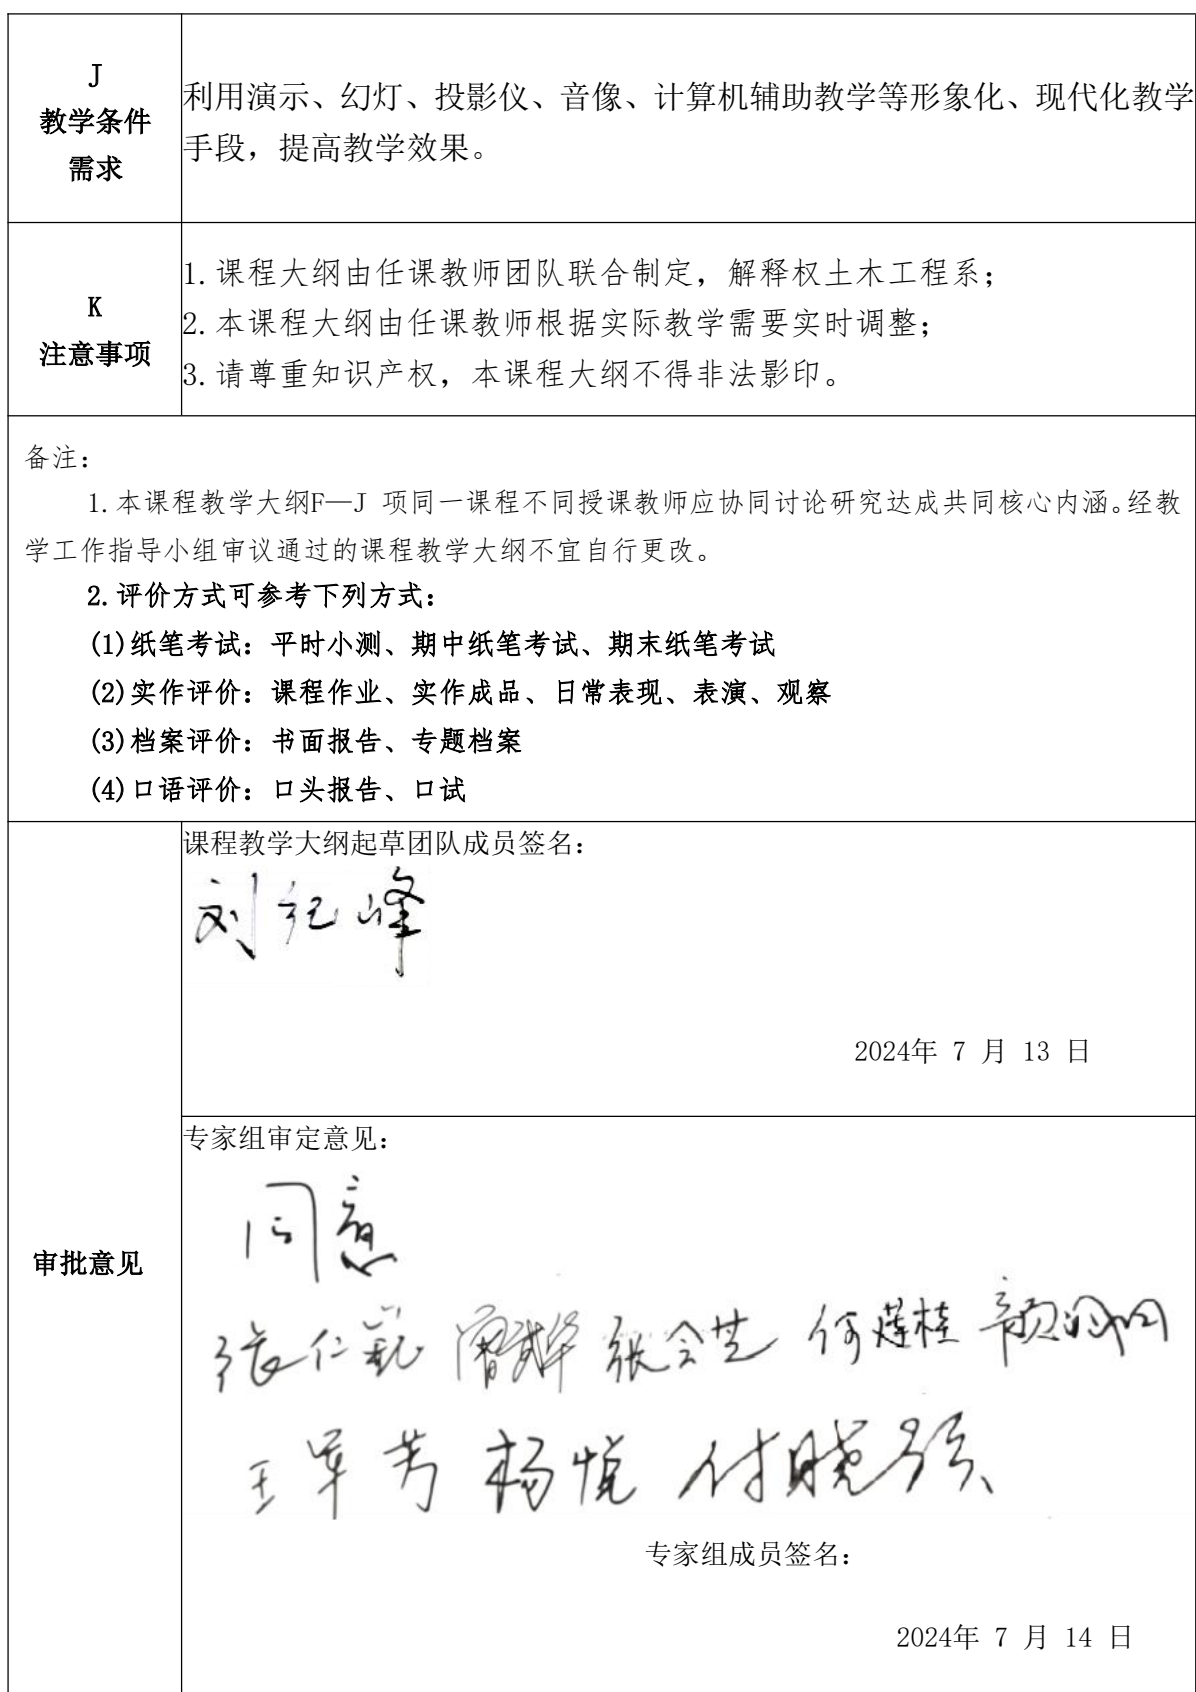 J
教学条件
需求
利用演示、幻灯、投影仪、音像、计算机辅助教学等形象化、现代化教学
手段，提高教学效果。
K
注意事项
1.课程大纲由任课教师团队联合制定，解释权土木工程系；
2.本课程大纲由任课教师根据实际教学需要实时调整；
3.请尊重知识产权，本课程大纲不得非法影印。
备注：
1.本课程教学大纲F—J 项同一课程不同授课教师应协同讨论研究达成共同核心内涵。经教
学工作指导小组审议通过的课程教学大纲不宜自行更改。
2.评价方式可参考下列方式：
(1)纸笔考试：平时小测、期中纸笔考试、期末纸笔考试
(2)实作评价：课程作业、实作成品、日常表现、表演、观察
(3)档案评价：书面报告、专题档案
(4)口语评价：口头报告、口试
审批意见
课程教学大纲起草团队成员签名：
刘纪峰
2024年 7 月 13 日
专家组审定意见：
同意
张仁 曾 张会芝 何莲桂 颜
王军芳 杨悦 付晓强
专家组成员签名：
2024年 7 月 14 日